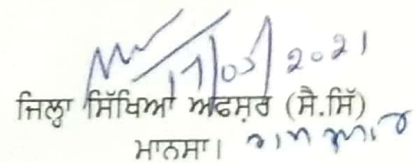 17/03/2021
ਜਿਲ੍ਹਾ ਸਿੱਖਿਆ ਅਫਸ਼ਰ (ਸੈ.ਸਿੱ)
ਮਾਨਸਾ।